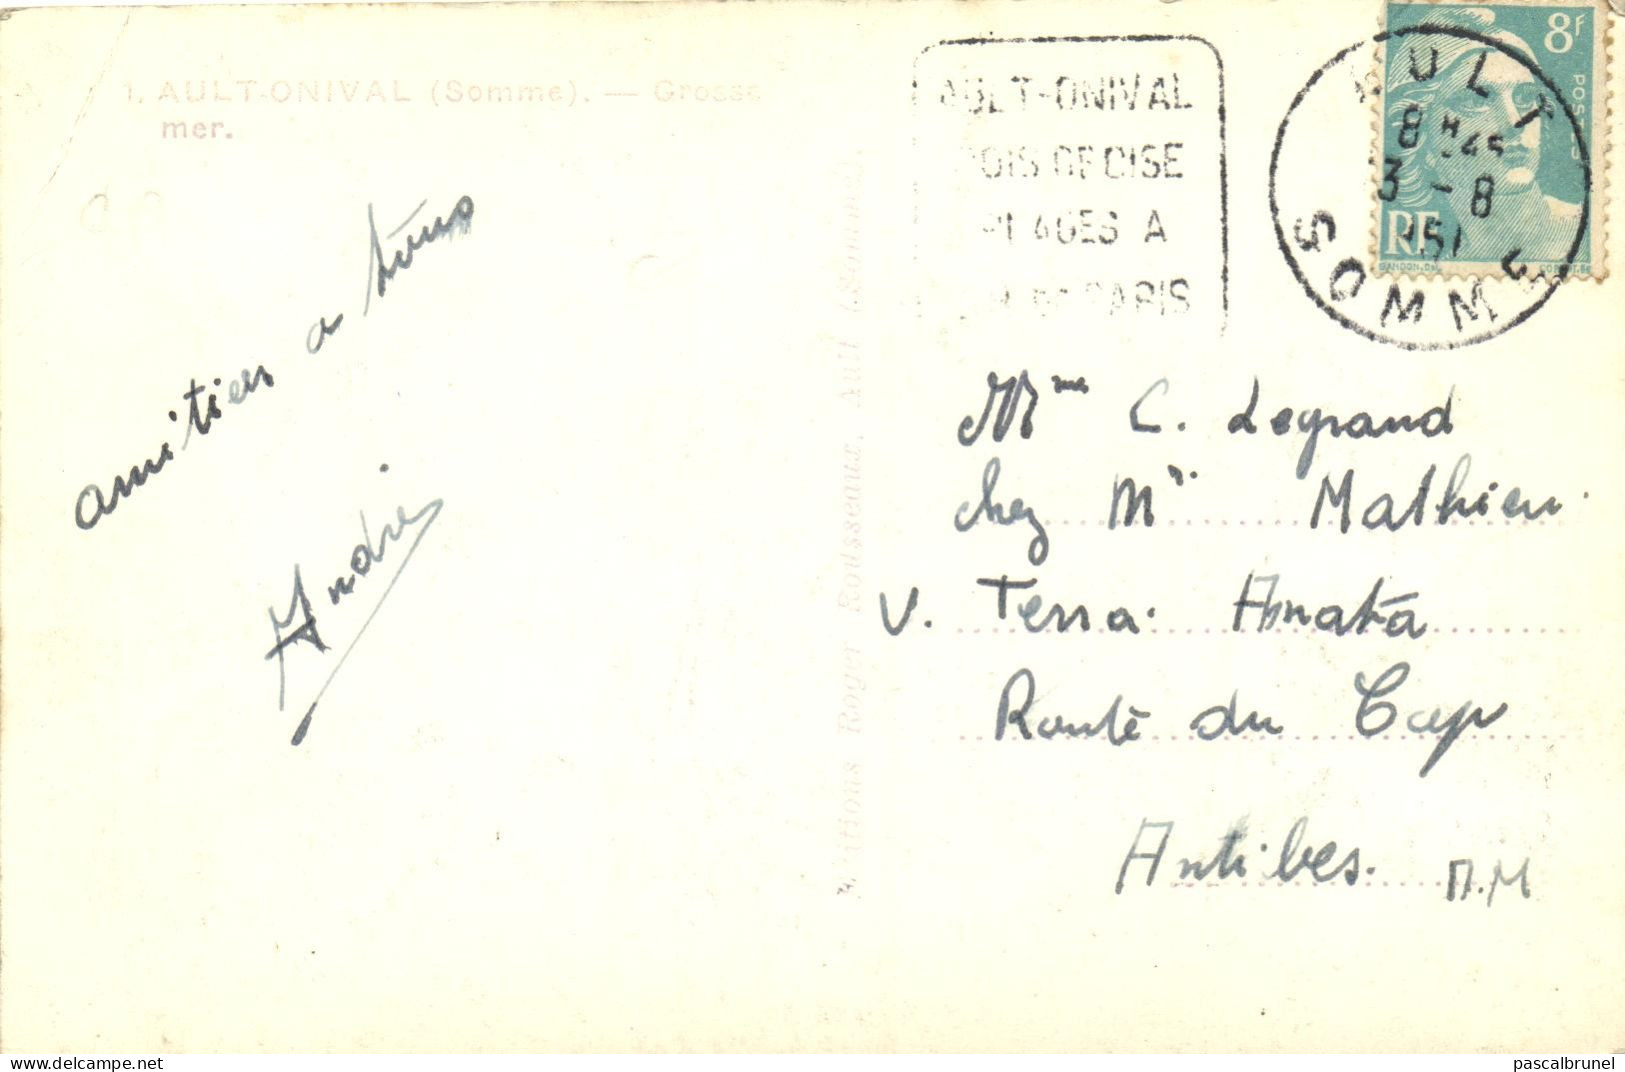 1. AULT-ONIVAL (Somme). — Grosse
mer.
amitiés a tous
André
Editions Roger Rousseaux, Ault (Somme)
AULT-ONIVAL
BOIS DE CISE
PLAGES A
DE PARIS
AULT
8H45
3 - 8
1951
SOMME
8F
POSTES
RF
GANDON
Mme C. Legrand
chez Mr Mathieu
V. Terra Amata
Route du Cap
Antibes.
A.M
pascalbrunel